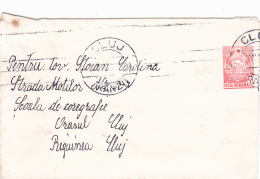 CLUJ
Pentru tov. Stoian Carolina
Strada Motilor
Școala de coregrafie
Orasul Cluj
Regiunea Cluj